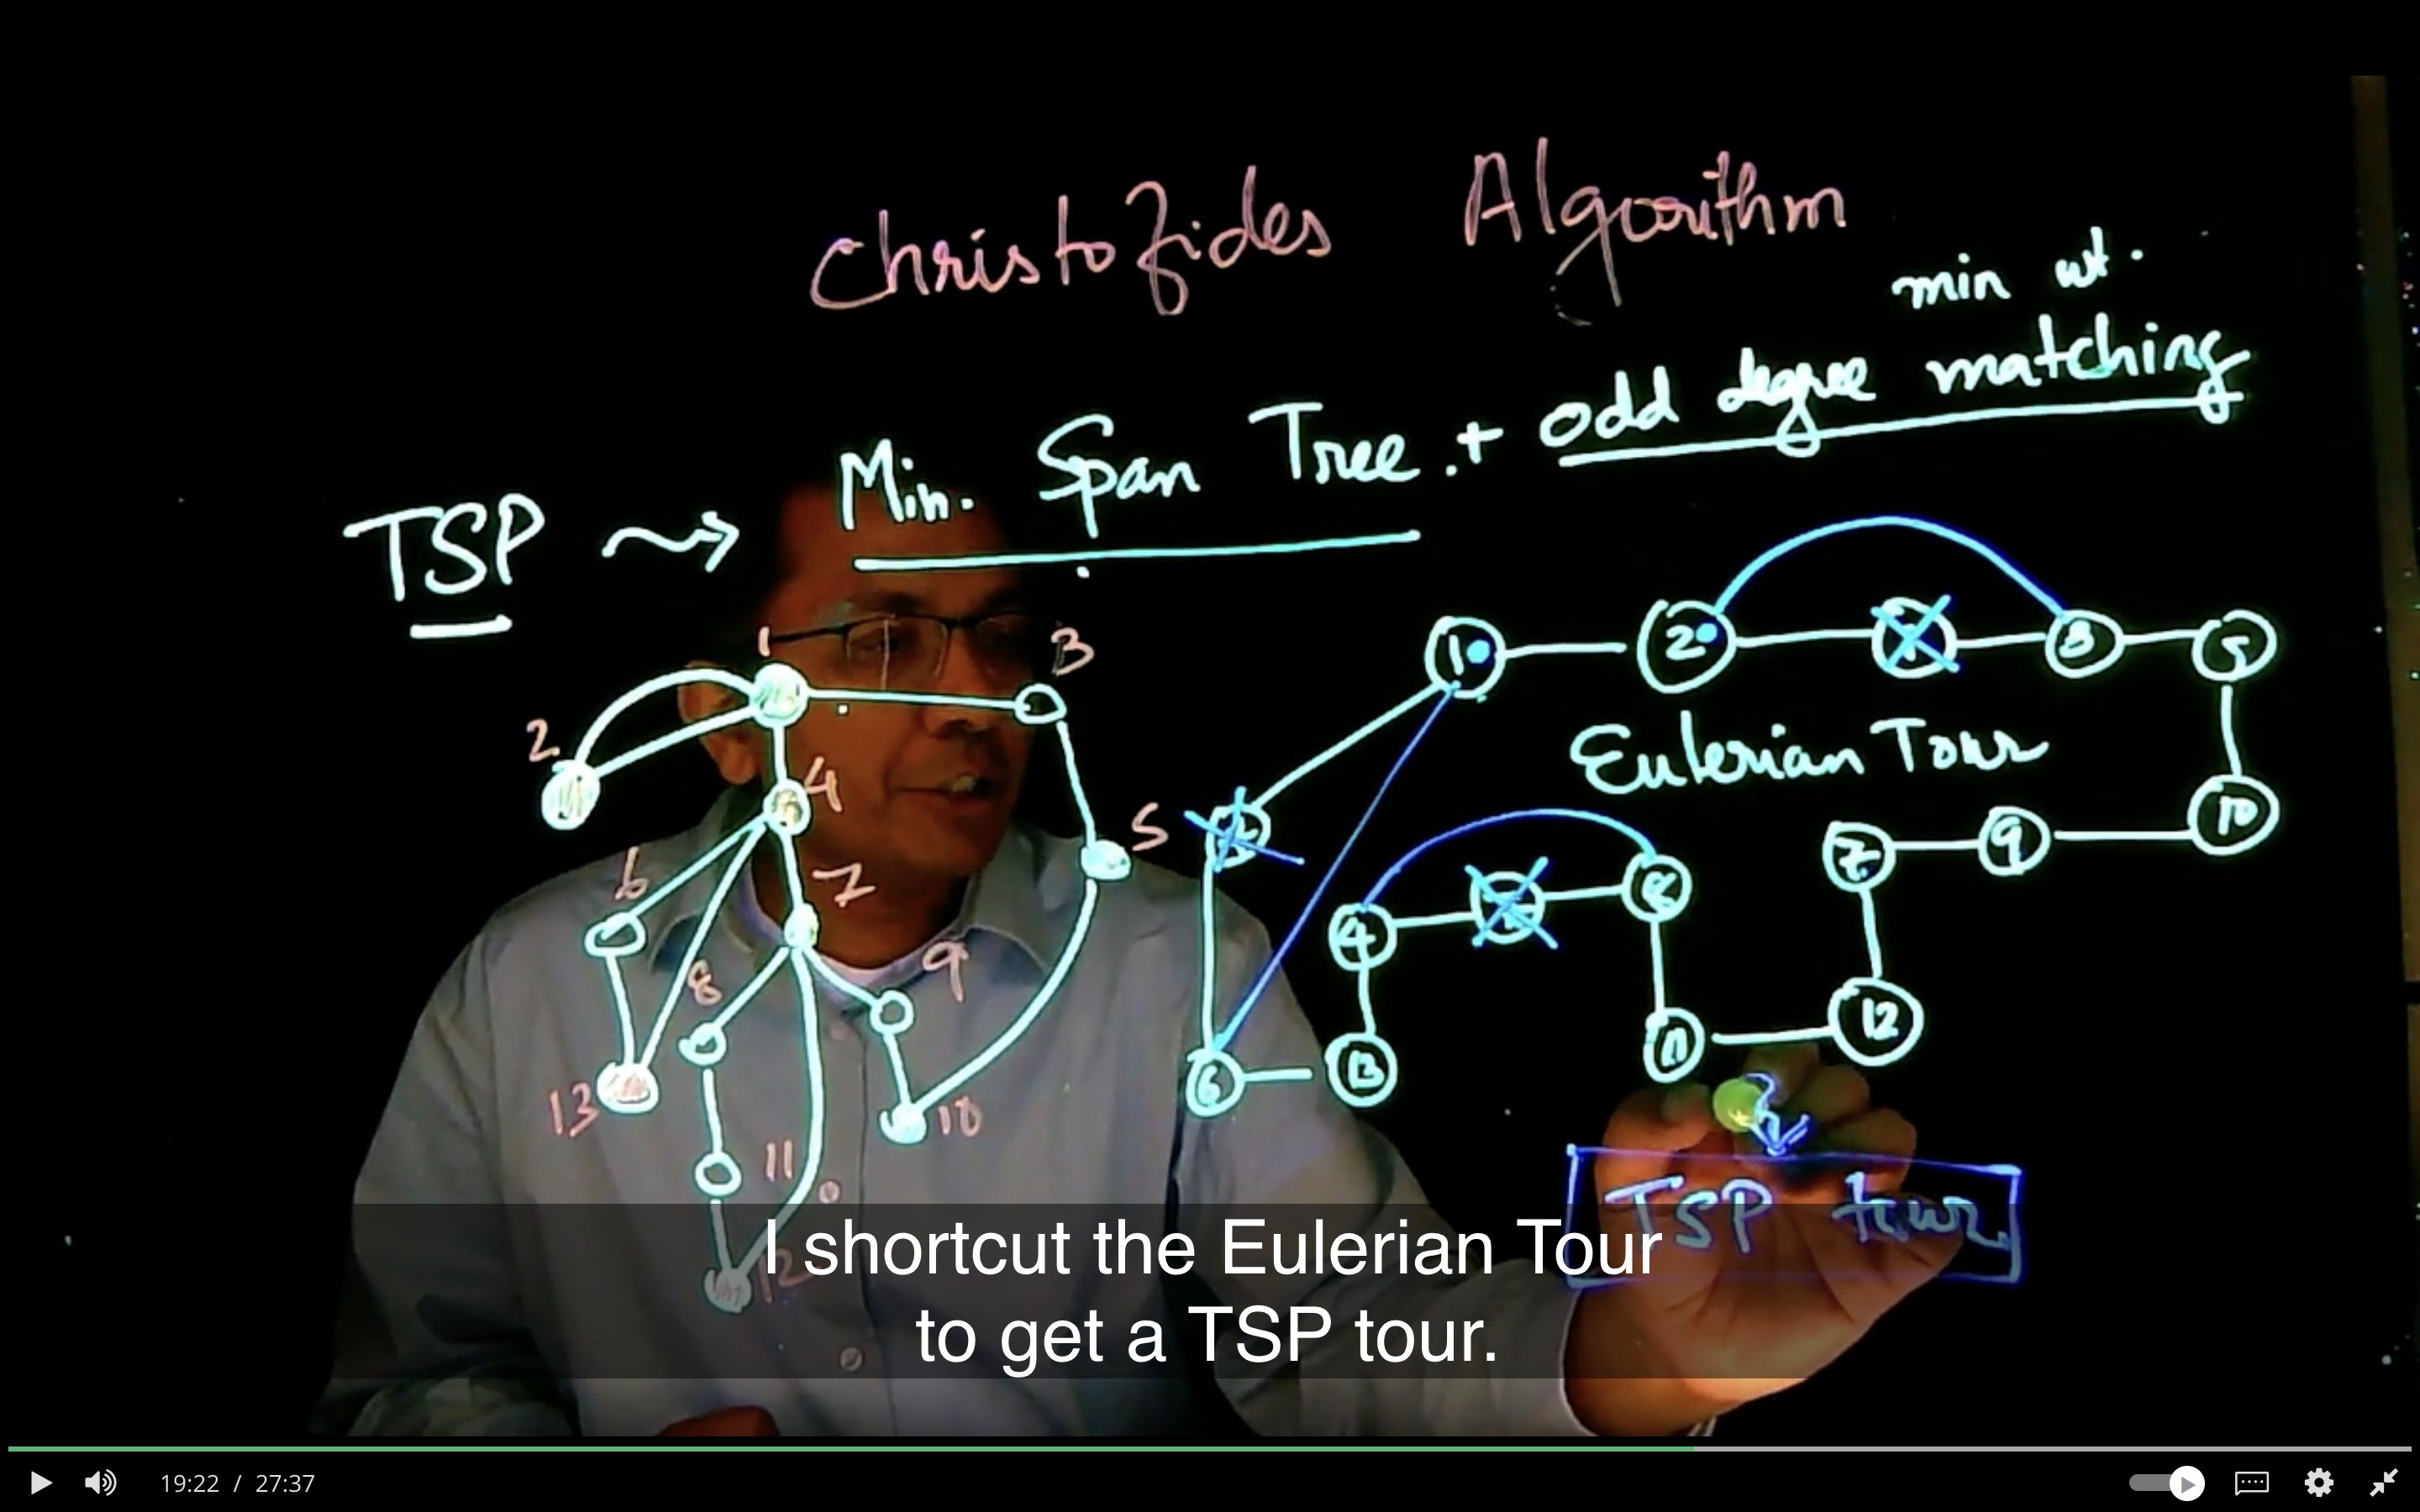 Christofides Algorithm
min wt.
TSP Min. Span Tree + odd degree matching
1 3
2
4
5
6 7
8 9
13 10
11
12
1 2 3 5
Eulerian Tour
10
7 9
4 8
12
6 13 11
TSP tour
I shortcut the Eulerian Tour
to get a TSP tour.
19:22 / 27:37